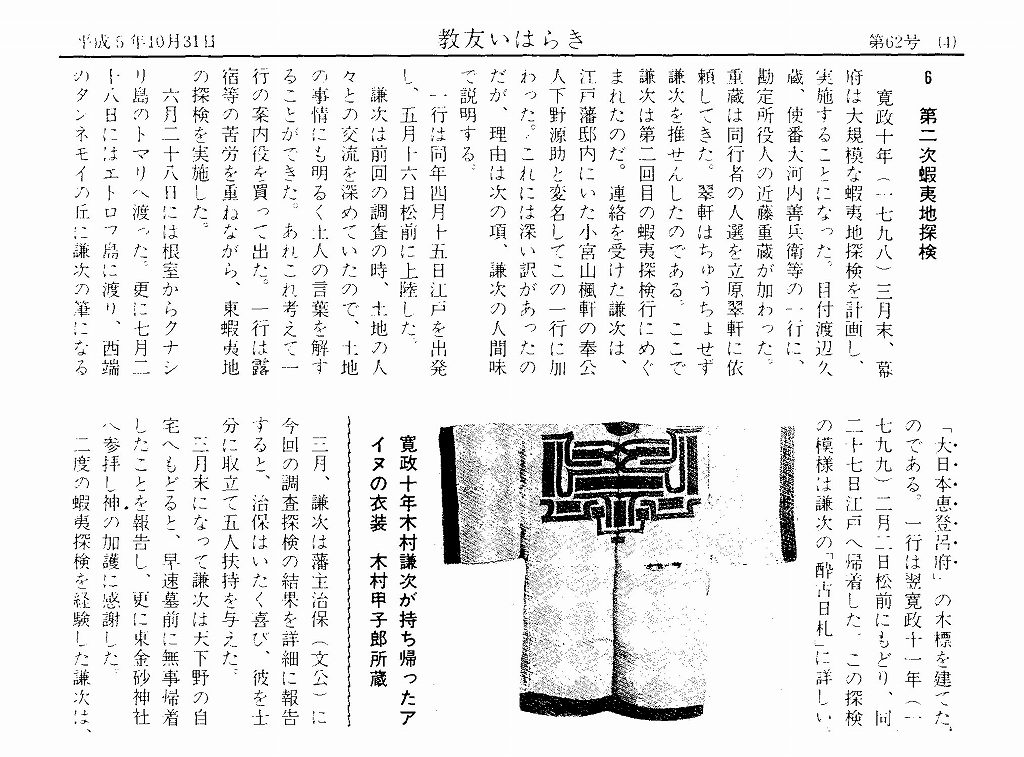 平成5年10月31日
教友いはらき
第62号 (4)
6 第二次蝦夷地探検
寛政十年(一七九八)三月末、幕
府は大規模な蝦夷地探検を計画し、
実施することになった。目付渡辺久
蔵、使番大河内善兵衛等の一行に、
勘定所役人の近藤重蔵が加わった。
重蔵は同行者の人選を立原翠軒に依
頼してきた。翠軒はちゅうちょせず
謙次を推せんしたのである。ここで
謙次は第二回目の蝦夷探検行にめぐ
まれたのだ。連絡を受けた謙次は、
江戸藩邸内にいた小宮山楓軒の奉公
人下野源助と変名してこの一行に加
わった。これには深い訳があったの
だが、理由は次の項、謙次の人間味
で説明する。
一行は同年四月十五日江戸を出発
し、五月十六日松前に上陸した。
謙次は前回の調査の時、土地の人
々との交流を深めていたので、土地
の事情にも明るく土人の言葉を解す
ることができた。あれこれ考えて一
行の案内役を買って出た。一行は露
宿等の苦労を重ねながら、東蝦夷地
の探検を実施した。
六月二十八日には根室からクナシ
リ島のトマリへ渡った。更に七月二
十八日にはエトロフ島に渡り、西端
のタンネモイの丘に謙次の筆になる
「大日本恵登呂府」の木標を建てた
のである。一行は翌寛政十一年(一
七九九)二月二日松前にもどり、同
二十七日江戸へ帰着した。この探検
の模様は謙次の「酔古日札」に詳しい
寛政十年木村謙次が持ち帰ったア
イヌの衣装 木村甲子郎所蔵
三月、謙次は藩主治保(文公)に
今回の調査探検の結果を詳細に報告
すると、治保はいたく喜び、彼を士
分に取立て五人扶持を与えた。
三月末になって謙次は天下野の自
宅へもどると、早速墓前に無事帰着
したことを報告し、更に東金砂神社
へ参拝し神の加護に感謝した。
二度の蝦夷探検を経験した謙次は、